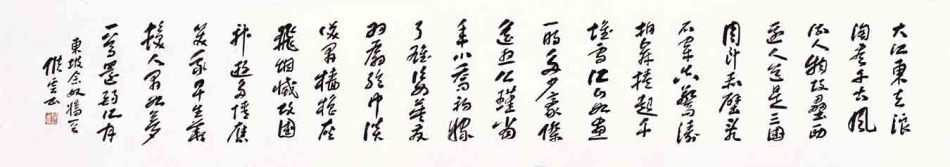 大江東去浪
淘盡千古風
流人物故壘西
邊人道是三國
周郎赤壁亂
石穿空驚濤
拍岸捲起千
堆雪江山如畫
一時多少豪傑
遙想公瑾當
年小喬初嫁
了雄姿英發
羽扇綸巾談
笑間檣櫓灰
飛煙滅故國
神遊多情應
笑我早生華
髮人間如夢
一尊還酹江月
東坡念奴嬌